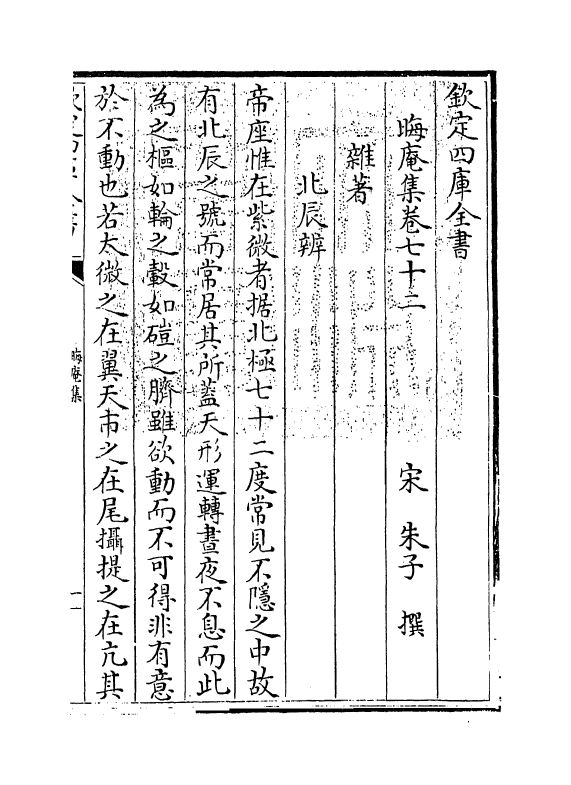 欽定四庫全書
晦庵集卷七十二
宋 朱子 撰
雜著
北辰辨
帝座惟在紫微者据北極七十二度常見不隱之中故
有北辰之號而常居其所蓋天形運轉晝夜不息而此
為之樞如輪之轂如磑之臍雖欲動而不可得非有意
於不動也若太微之在翼天市之在尾攝提之在亢其
欽定四庫全書
晦庵集
一